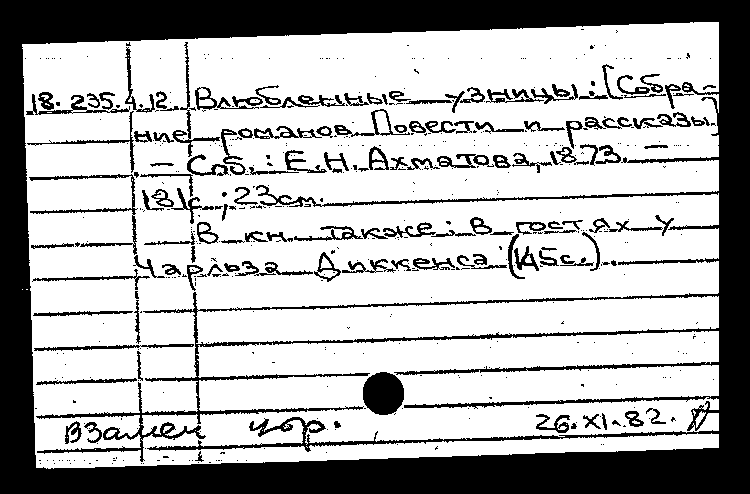 18.235.4.12. Влюбленные узницы: [Собра-
ние романов. Повести и рассказы]
. — Спб.: Е.Н. Ахматова, 1873. —
181с; 23см.
В кн. также: В гостях у
Чарльза Диккенса (145с.).
Взамен 26.XI.82.